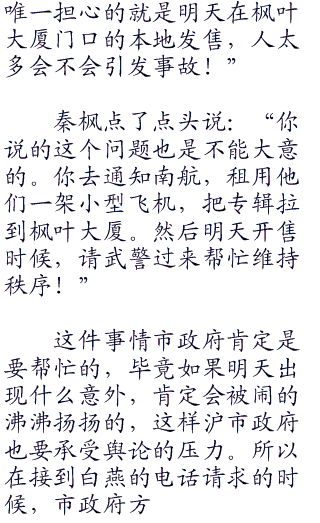 唯一担心的就是明天在枫叶
大厦门口的本地发售，人太
多会不会引发事故！”
秦枫点了点头说：“你
说的这个问题也是不能大意
的。你去通知南航，租用他
们一架小型飞机，把专辑拉
到枫叶大厦。然后明天开售
时候，请武警过来帮忙维持
秩序！”
这件事情市政府肯定是
要帮忙的，毕竟如果明天出
现什么意外，肯定会被闹的
沸沸扬扬的，这样沪市政府
也要承受舆论的压力。所以
在接到白燕的电话请求的时
候，市政府方